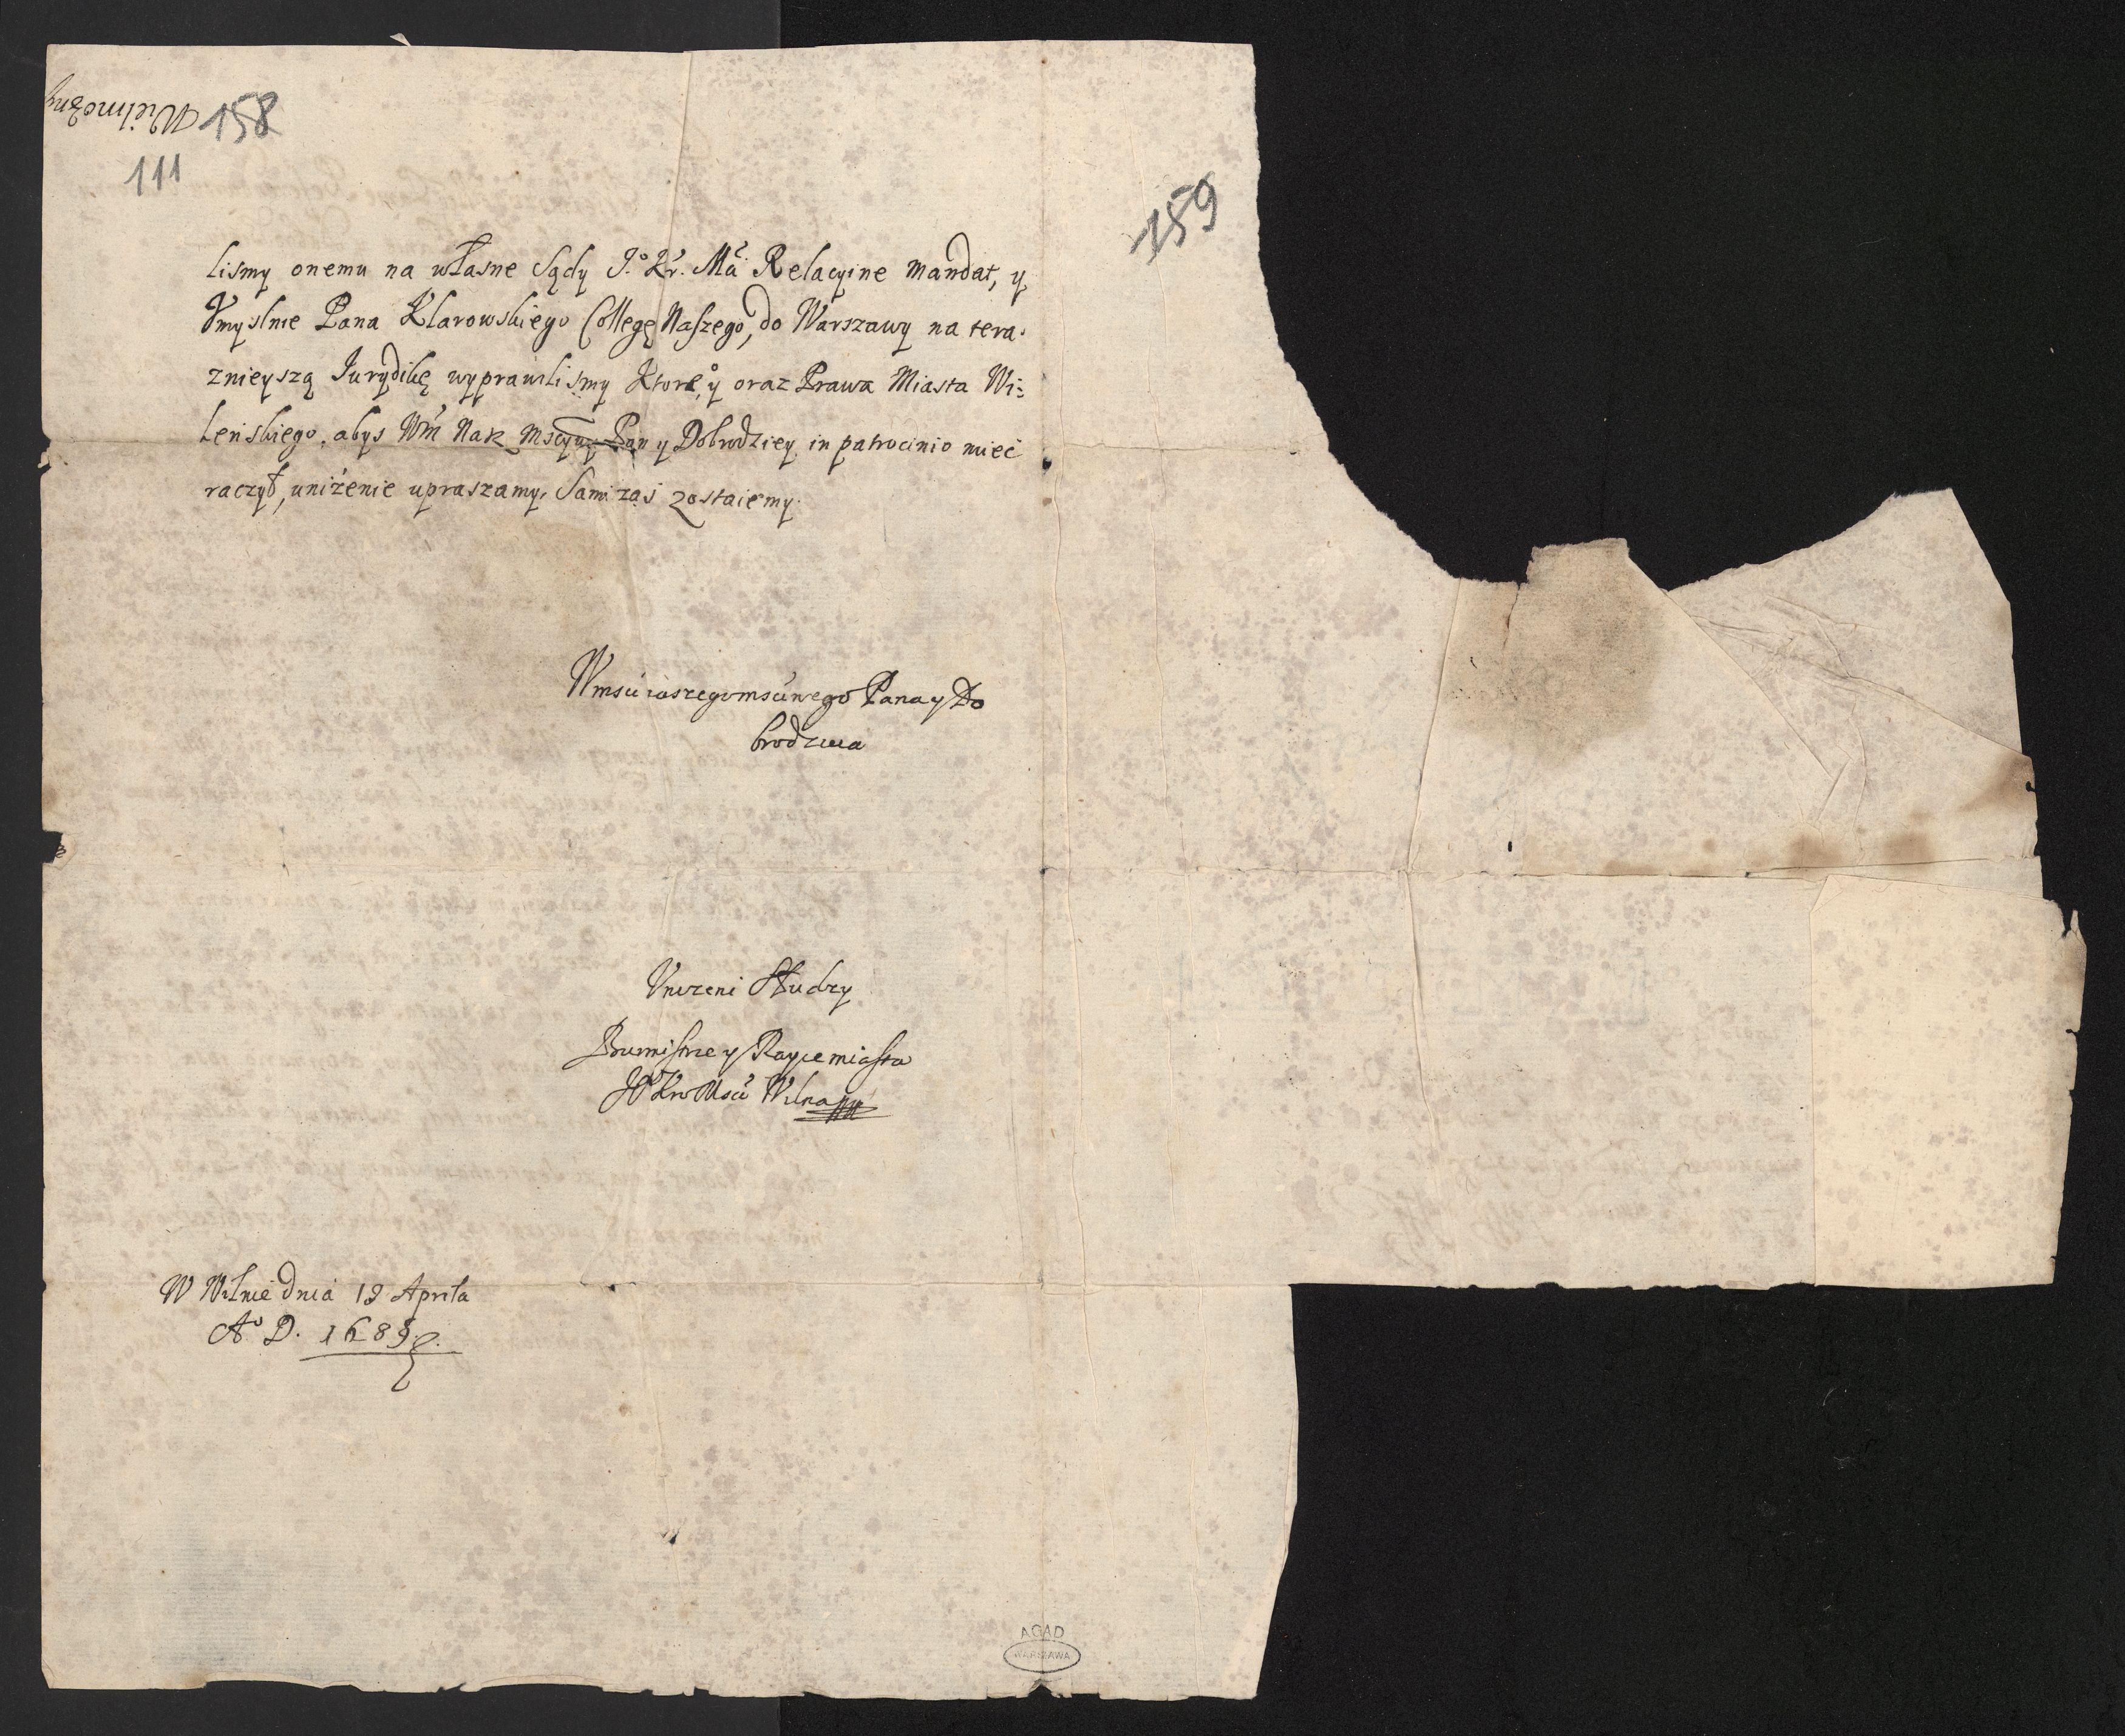 Wielmożny
158
111
159
lismy onemu na własne Sądy J.º Kr. Mci Relacyine Mandat, y
Vmyslnie Pana Klarowskiego Collegę Naszego, do Warszawy na tera.
znieyszą Jurydikę wyprawilismy Ktore, y oraz Prawa Miasta Wi:
leńskiego, abys Wm Nasz Msciwy Pan y Dobrodziey in patrocinio mieć
raczył, uniżenie upraszamy, Sami zaś zostaiemy.
Wmsci naszego msciwego Pana y Do
brodzieia
Vnizeni Słudzy
Burmistrze y Raycе miasta
JºKroMsci Wilna
W Wilnie dnia 19 Aprila
Aº D. 1689.
AGAD
WARSZAWA